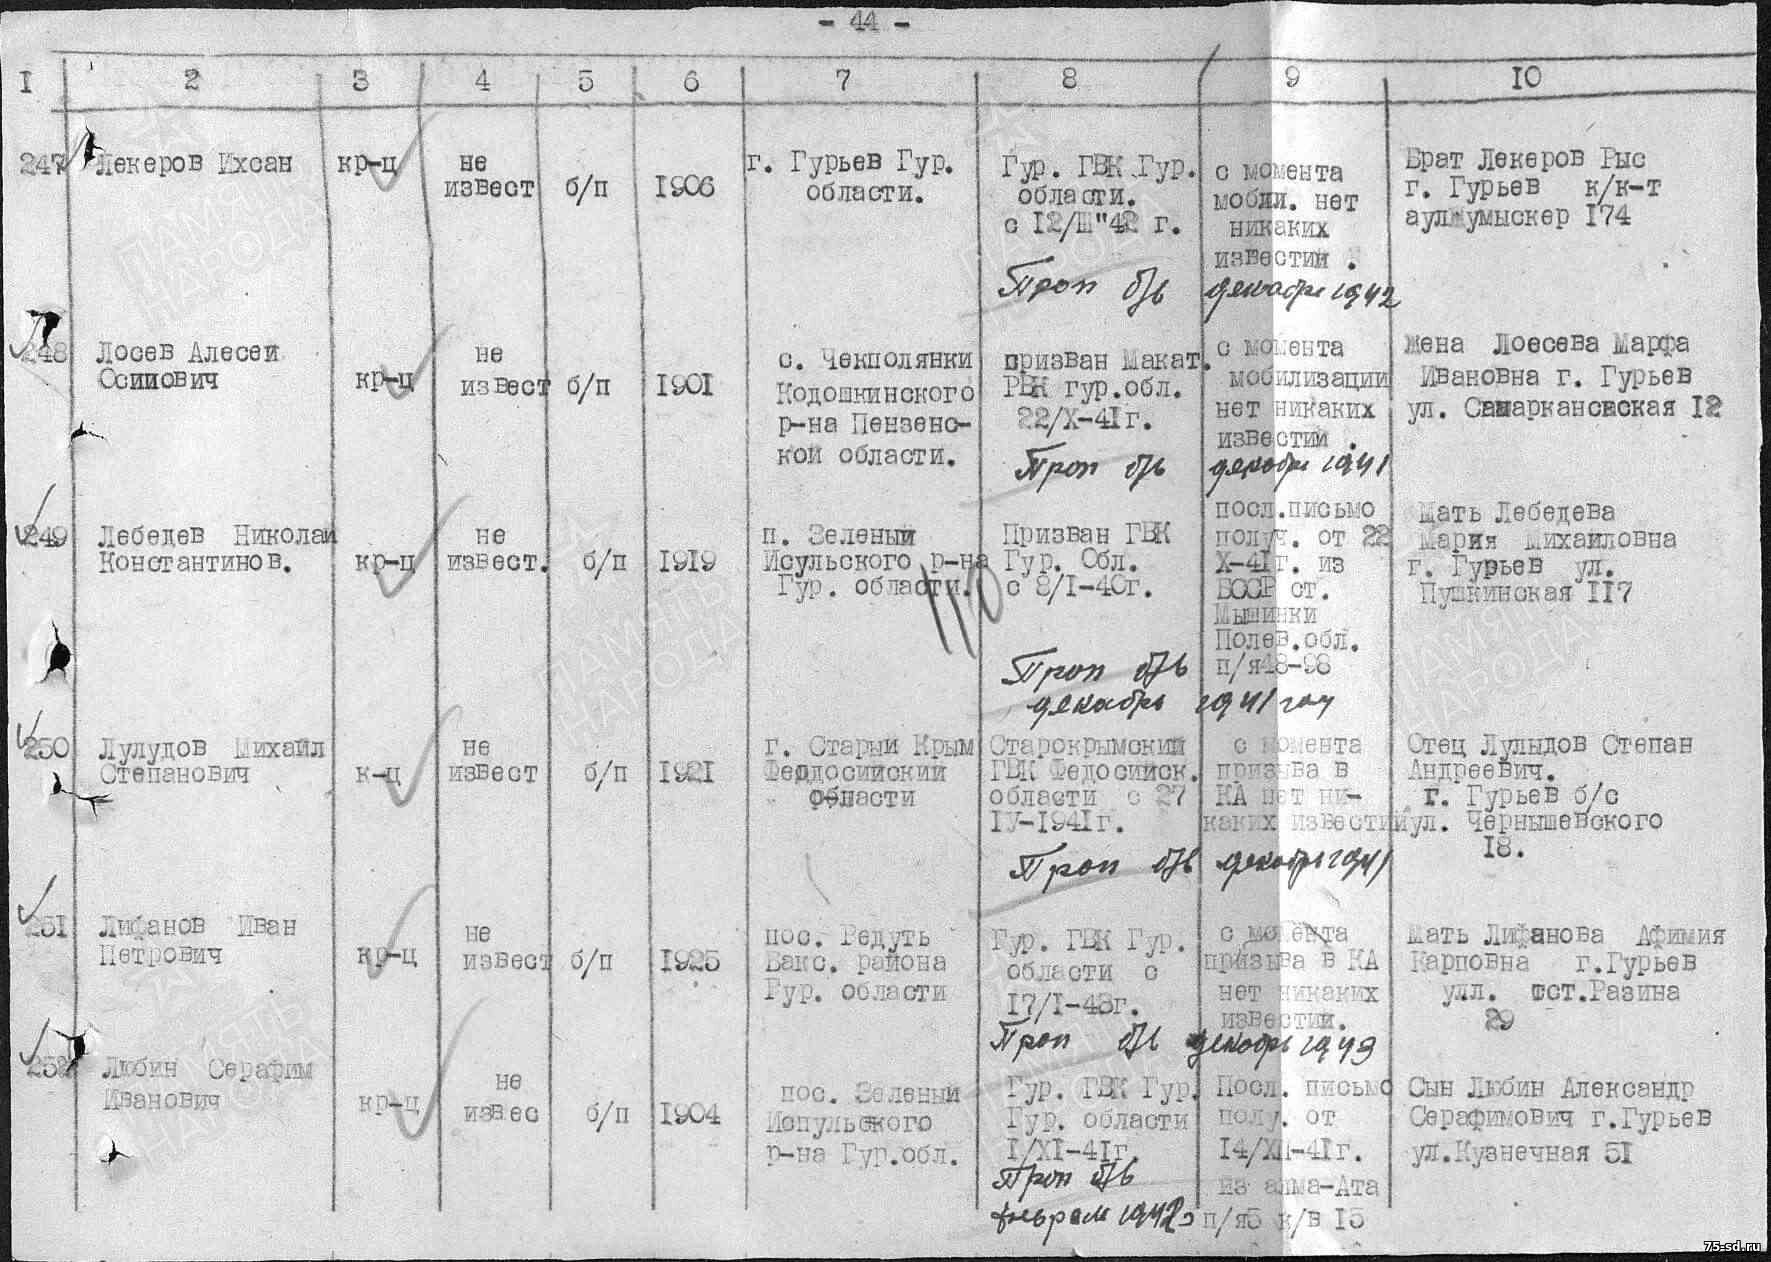 - 44 -
I 2 3 4 5 6 7 8 9 10
247 Лекеров Ихсан кр-ц не извест б/п 1906 г. Гурьев Гур. области. Гур. ГВК Гур. области. с 12/Ш"42 г. с момента мобил. нет никаких известий . Брат Лекеров Рыс г. Гурьев к/к-т аул жумыскер 174
Проп б/в декабре 1942
248 Лосев Алесей Осипович кр-ц не извест б/п 1901 с. Чекполянки Кодошкинского р-на Пензенс- кой области. призван Макат. РВК гур.обл. 22/X-41г. с момента мобилизации нет никаких известии . жена Лоесева Марфа Ивановна г. Гурьев ул. 12
Проп б/в декабре 1941
249 Лебедев Николай Константинов. кр-ц не извест. б/п 1919 п. Зеленый Исульского р-на Гур. области. Призван ГВК Гур. Обл. с 8/I-40г. посл.письмо получ. от 22 X-41г. из БССР ст. Мышинки Полев.обл. п/я48-98 Мать Лебедева Мария Михайловна г. Гурьев ул. Пушкинская 117
110
Проп б/в декабрь 1941 год
250 Лулудов Михайл Степанович к-ц не извест б/п 1921 г. Старый Крым Феодосийский области Старокрымский ГВК Федосийск. области с 27 IУ-1941г. с момента призыва в КА нет ни- каких известий Отец Лулыдов Степан Андреевич. г. Гурьев б/с ул. Чернышевского 18.
Проп б/в декабрь 1941
251 Лифанов Иван Петрович кр-ц не извест б/п 1925 пос. Редуть Бакс. района Гур. области Гур. ГВК Гур. области с 17/I-43г. с момента призыва в КА нет никаких известии. Мать Лифанова Афимия Карповна г.Гурьев улл. ст.Разина 29
Проп б/в декабрь 1943
252 Любин Серафим Иванович кр-ц не извес б/п 1904 пос. Зеленый Испульского р-на Гур.обл. Гур. ГВК Гур. Гур. области 1/XI-41г. Посл. письмо полу. от 14/XII-41г. из алма-Ата п/я5 к/в 15 Сын Любин Александр Серафимович г.Гурьев ул.Кузнечная 51
Проп б/в феврале 1942г
ПАМЯТЬ НАРОДА
75-sd.ru